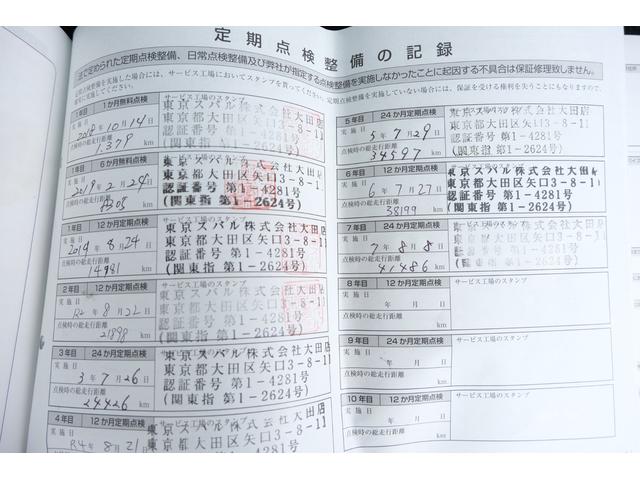 定期点検整備の記録
法で定められた定期点検整備、日常点検整備及び弊社が指定する点検整備を実施しなかったことに起因する不具合は保証修理致しません。
定期点検整備を実施した場合には、サービス工場においてスタンプを貰ってください。定期点検整備を実施していない場合には、保証を受ける権利を失うことにもなりますので、
確実に実施してください。
1年目 1か月無料点検 サービス工場のスタンプ
実施日 2018年10月14日
点検時の総走行距離
1,379 km
東京スバル株式会社大田店
東京都大田区矢口3-8-11
認証番号 第1-4281号
(関東指 第1-2624号)
1年目 6か月無料点検 サービス工場のスタンプ
実施日
2019年2月24日
点検時の総走行距離
km
東京スバル株式会社大田店
東京都大田区矢口3-8-11
認証番号 第1-4281号
(関東指 第1-2624号)
1年目 12か月定期点検 サービス工場のスタンプ
実施日
2019年8月24日
点検時の総走行距離
14981 km
東京スバル株式会社大田店
東京都大田区矢口3-8-11
認証番号 第1-4281号
(関東指 第1-2624号)
2年目 12か月定期点検 サービス工場のスタンプ
実施日
R2年8月22日
点検時の総走行距離
21898 km
東京スバル株式会社大田店
東京都大田区矢口3-8-11
認証番号 第1-4281号
(関東指 第1-2624号)
3年目 24か月定期点検 サービス工場のスタンプ
実施日
3年7月26日
点検時の総走行距離
24426 km
東京スバル株式会社大田店
東京都大田区矢口3-8-11
認証番号 第1-4281号
(関東指 第1-2624号)
4年目 12か月定期点検 サービス工場のスタンプ
実施日
R4年8月21日
点検時の総走行距離
東京スバル株式会社大田店
東京都大田区矢口3-8-11
認証番号 第1-4281号
5年目 24か月定期点検 サービス工場のスタンプ
実施日
5年7月29日
点検時の総走行距離
34597 km
東京スバル株式会社大田店
東京都大田区矢口3-8-11
認証番号 第1-4281号
(関東指 第1-2624号)
6年目 12か月定期点検 サービス工場のスタンプ
実施日
6年7月27日
点検時の総走行距離
38199 km
東京スバル株式会社大田
東京都大田区矢口3-8-11
認証番号 第1-4281号
(関東指 第1-2624号)
7年目 24か月定期点検 サービス工場のスタンプ
実施日
7年8月8日
点検時の総走行距離
41486 km
東京スバル株式会社大田店
東京都大田区矢口3-8-11
認証番号 第1-4281号
(関東指 第1-2624号)
8年目 12か月定期点検 サービス工場のスタンプ
実施日
年 月 日
点検時の総走行距離
km
9年目 24か月定期点検 サービス工場のスタンプ
実施日
年 月 日
点検時の総走行距離
km
10年目 12か月定期点検 サービス工場のスタンプ
実施日
年 月 日
点検時の総走行距離
km